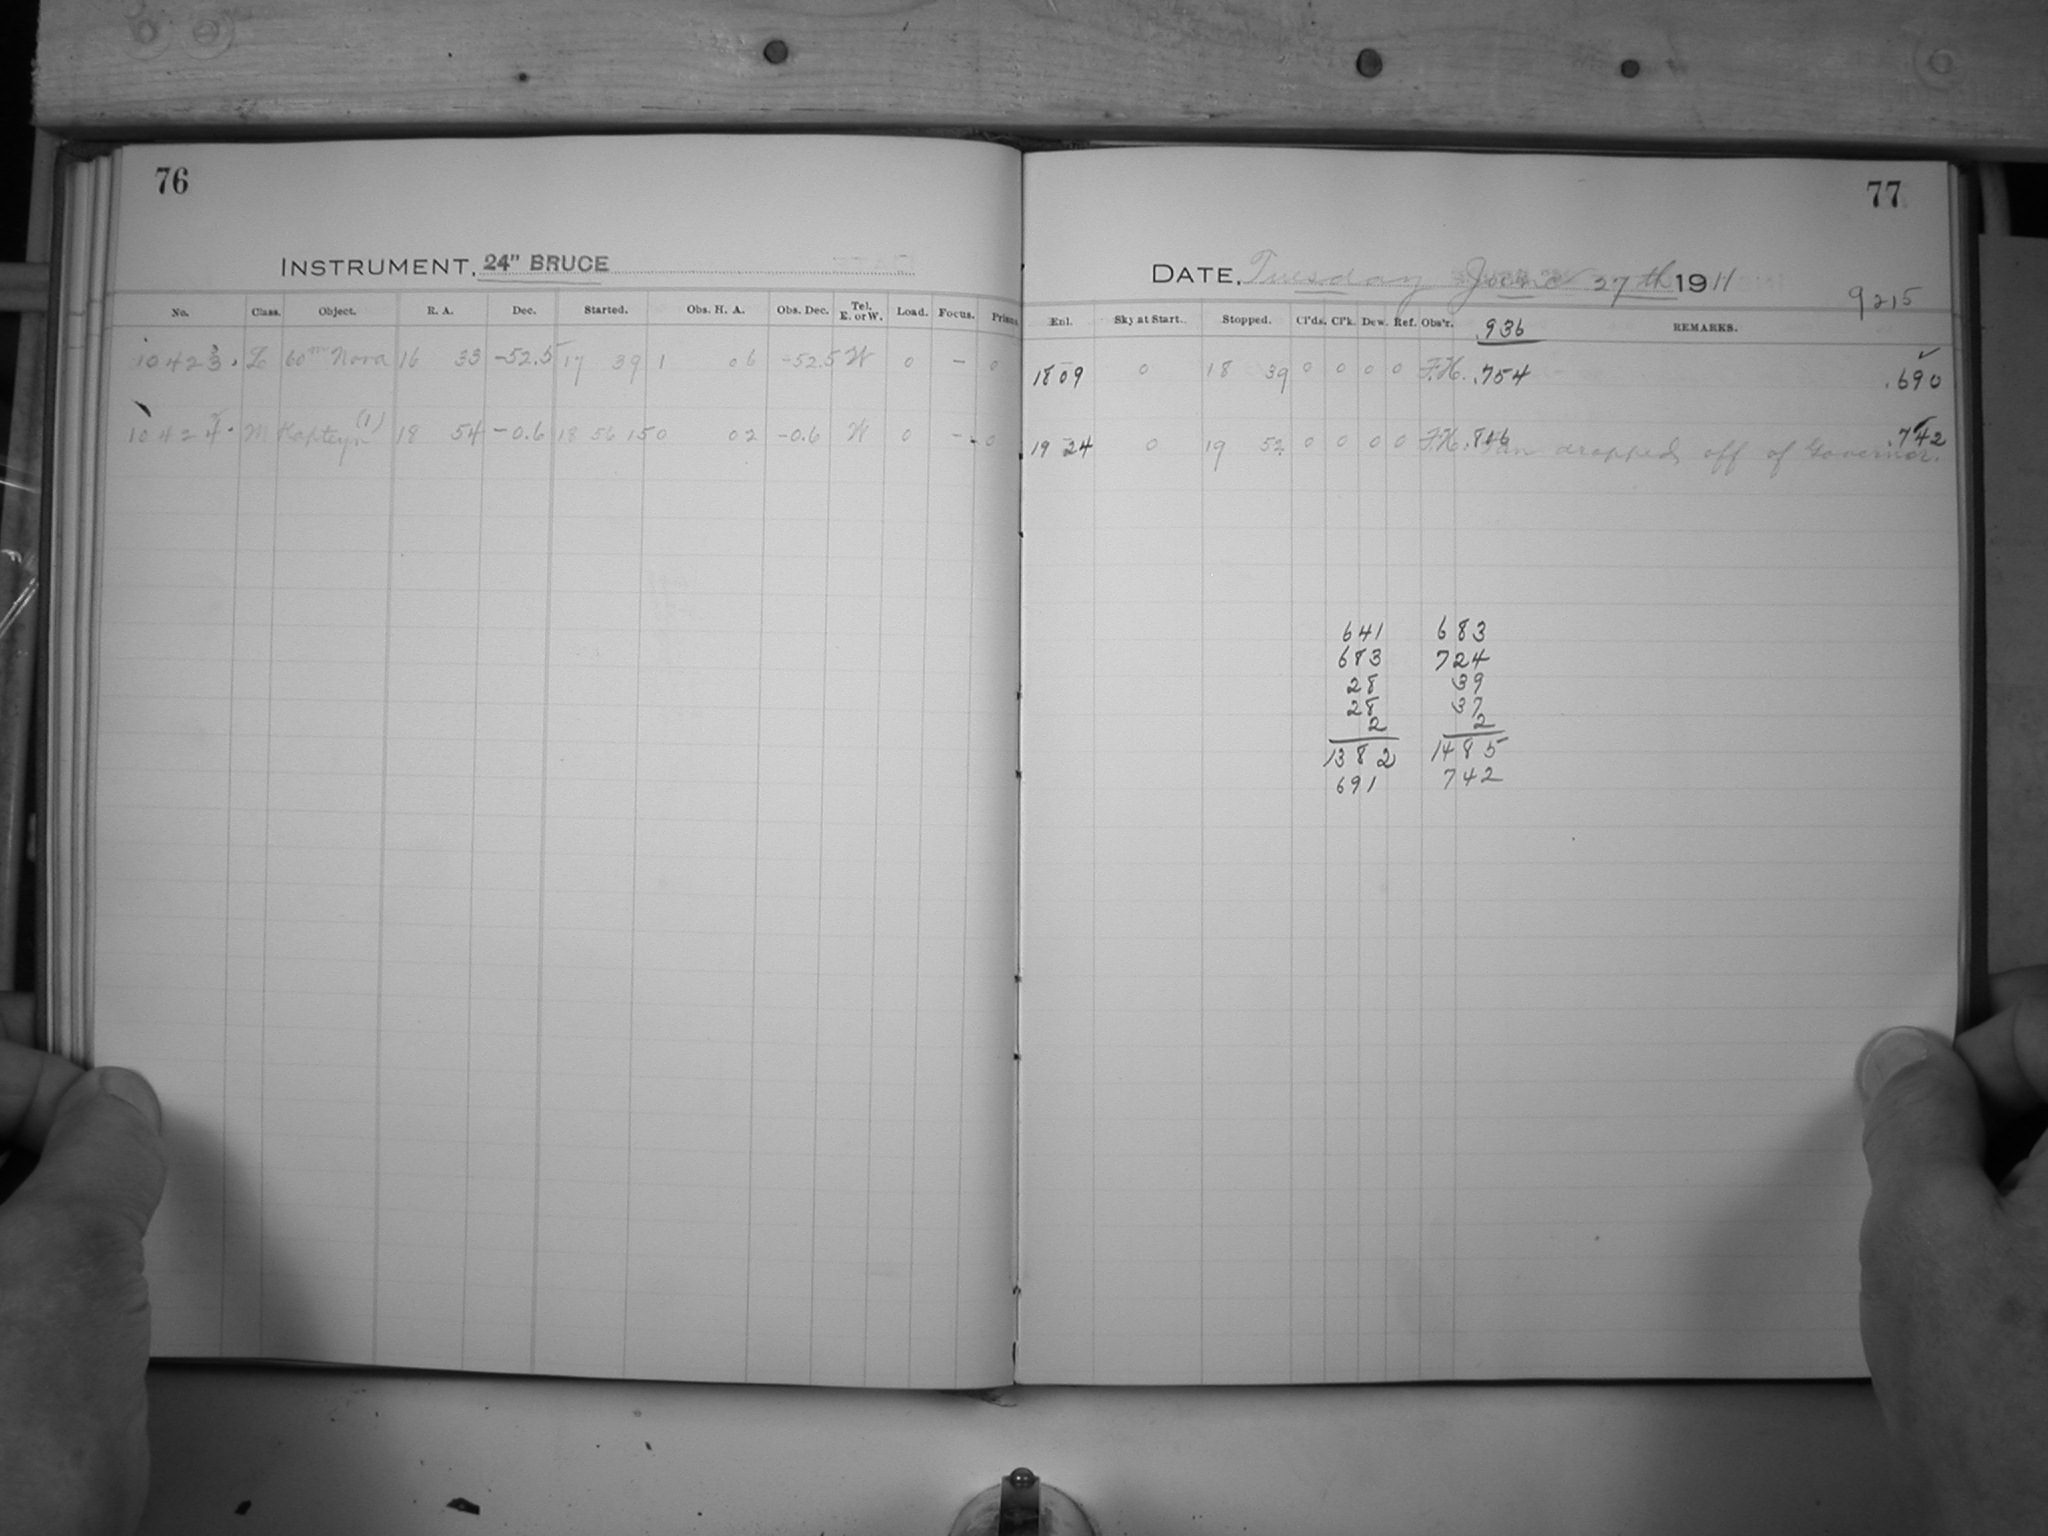 76
INSTRUMENT, 24" BRUCE
No. Class. Object. R. A. Dec. Started. Obs. H. A. Obs. Dec. Tel. E. or W. Load. Focus. Prism.
10423. L 60m Nova 16 33 -52.5 17 39 1 06 -52.5 W 0 - 0
10424. M Kapteyn (1) 18 54 -0.6 18 56 15 0 02 -0.6 W 0 - 0
77
DATE, Tuesday June 27th 1911
9215
Enl. Sky at Start. Stopped. Cl'ds. Cl'k. Dew. Ref. Obs'r. .936 REMARKS.
1809 0 18 39 0 0 0 0 F.H. .754 .690
19 24 0 19 52 0 0 0 0 F.H. .806 Fan dropped off of Governor. .742
641 683
683 724
28 39
28 37
2 2
1382 1485
691 742